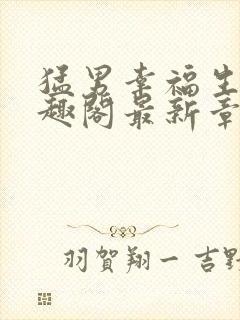 猛男幸福生
趣阁最新章
羽賀翔一 吉野